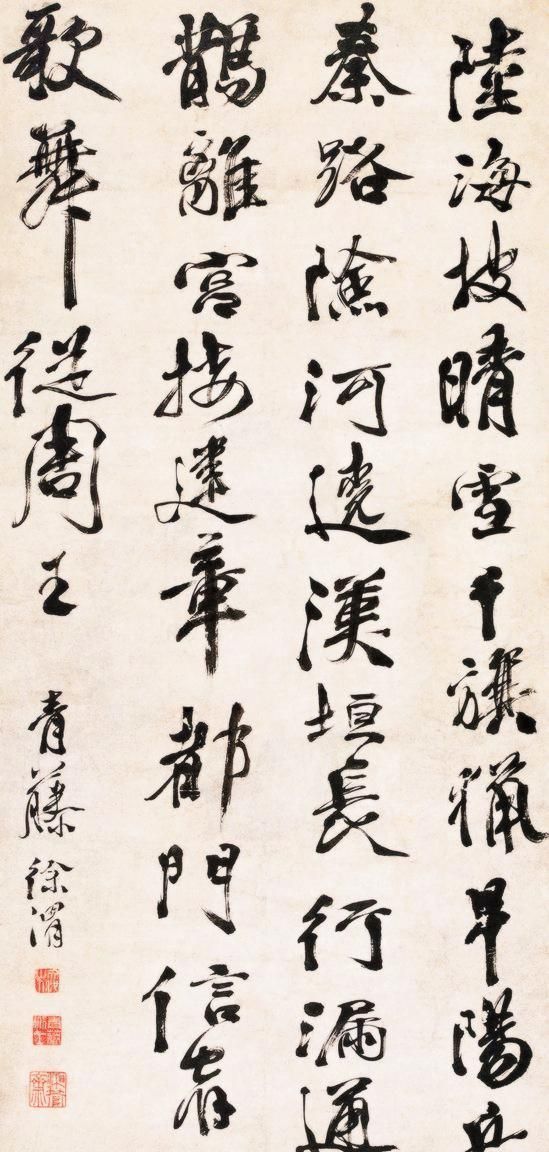 陸海披晴雪千旗獵早陽岳
秦路險河遶漢垣長行漏通
鵲離宮接建章都門信宿
歌舞從周王
青藤徐渭